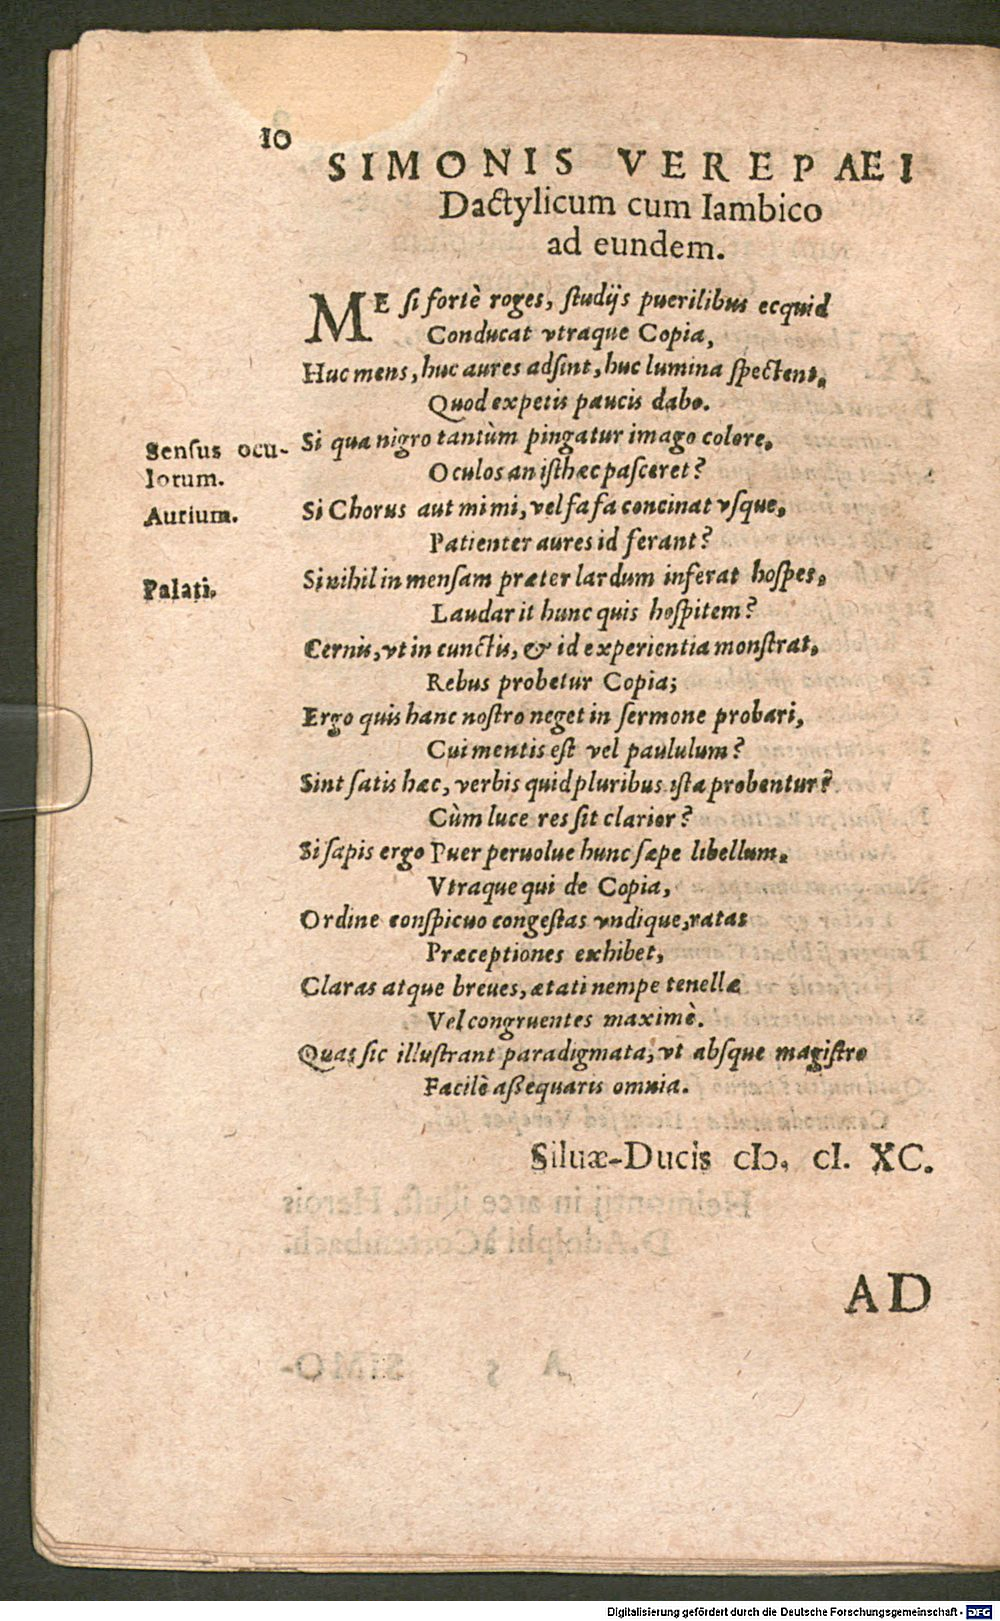 10
SIMONIS VEREPAEI
Dactylicum cum Iambico
ad eundem.
ME si fortè roges, studijs puerilibus ecquid
Conducat vtraque Copia,
Huc mens, huc aures adsint, huc lumina spectent,
Quod expetis paucis dabo.
Sensus ocu-
lorum.
Si qua nigro tantùm pingatur imago colore,
Oculos an isthæc pasceret?
Aurium.
Si Chorus aut mi mi, vel fa fa concinat vsque,
Patienter aures id ferant?
Palati.
Si nihil in mensam præter lardum inferat hospes,
Laudarit hunc quis hospitem?
Cernis, vt in cunctis, & id experientia monstrat,
Rebus probetur Copia;
Ergo quis hanc nostro neget in sermone probari,
Cui mentis est vel paululum?
Sint satis hæc, verbis quid pluribus ista probentur?
Cùm luce res sit clarior?
Si sapis ergo Puer peruolue hunc sæpe libellum,
Vtraque qui de Copia,
Ordine conspicuo congestas vndique, ratas
Præceptiones exhibet,
Claras atque breues, ætati nempe tenellæ
Vel congruentes maximè.
Quas sic illustrant paradigmata, vt absque magistro
Facilè aßequaris omnia.
Siluæ-Ducis cIɔ. cI. XC.
AD
Digitalisierung gefördert durch die Deutsche Forschungsgemeinschaft - DFG